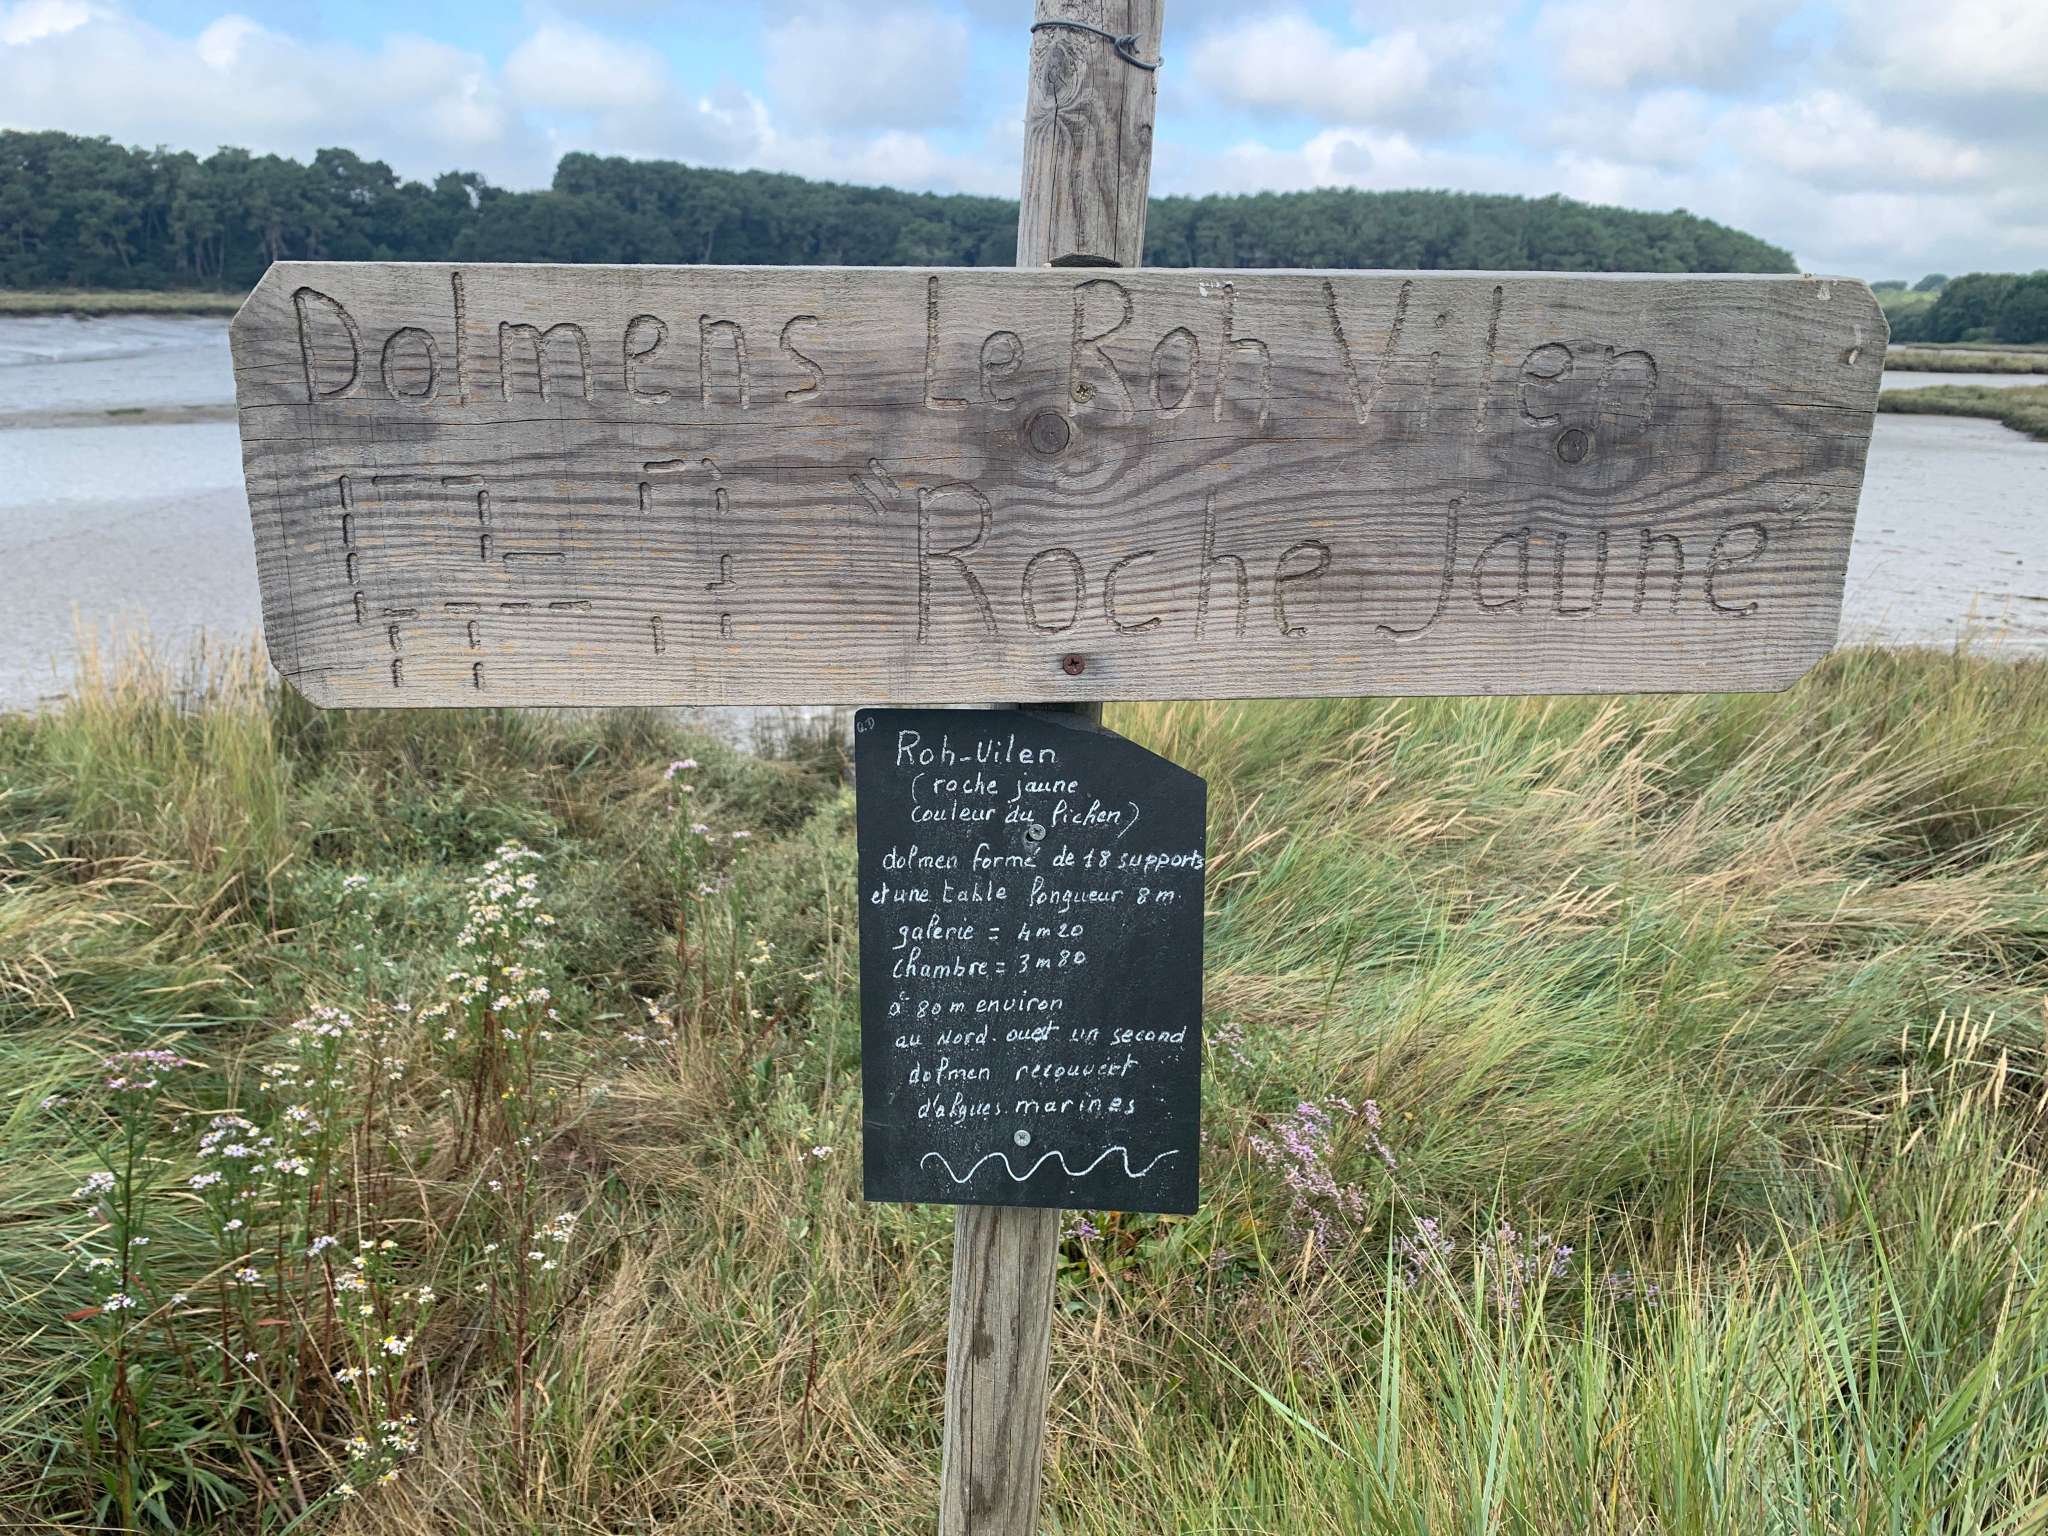 Dolmens Le Roh Vilen
"Roche Jaune"
G.D
Roh-Vilen
(roche jaune
couleur du lichen)
dolmen formé de 18 supports
et une table longueur 8 m.
galerie = 4m20
chambre = 3m80
à 80 m environ
au Nord. ouest un second
dolmen recouvert
d'algues. marines